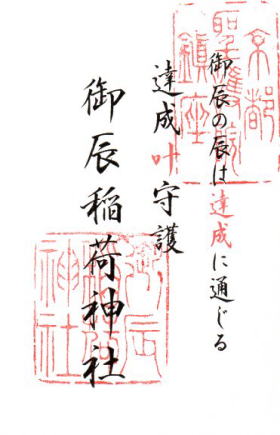 御辰の辰は達成に通じる
達成叶守護
御辰稲荷神社
京都
聖護院
鎮座
御辰
稲荷
神社